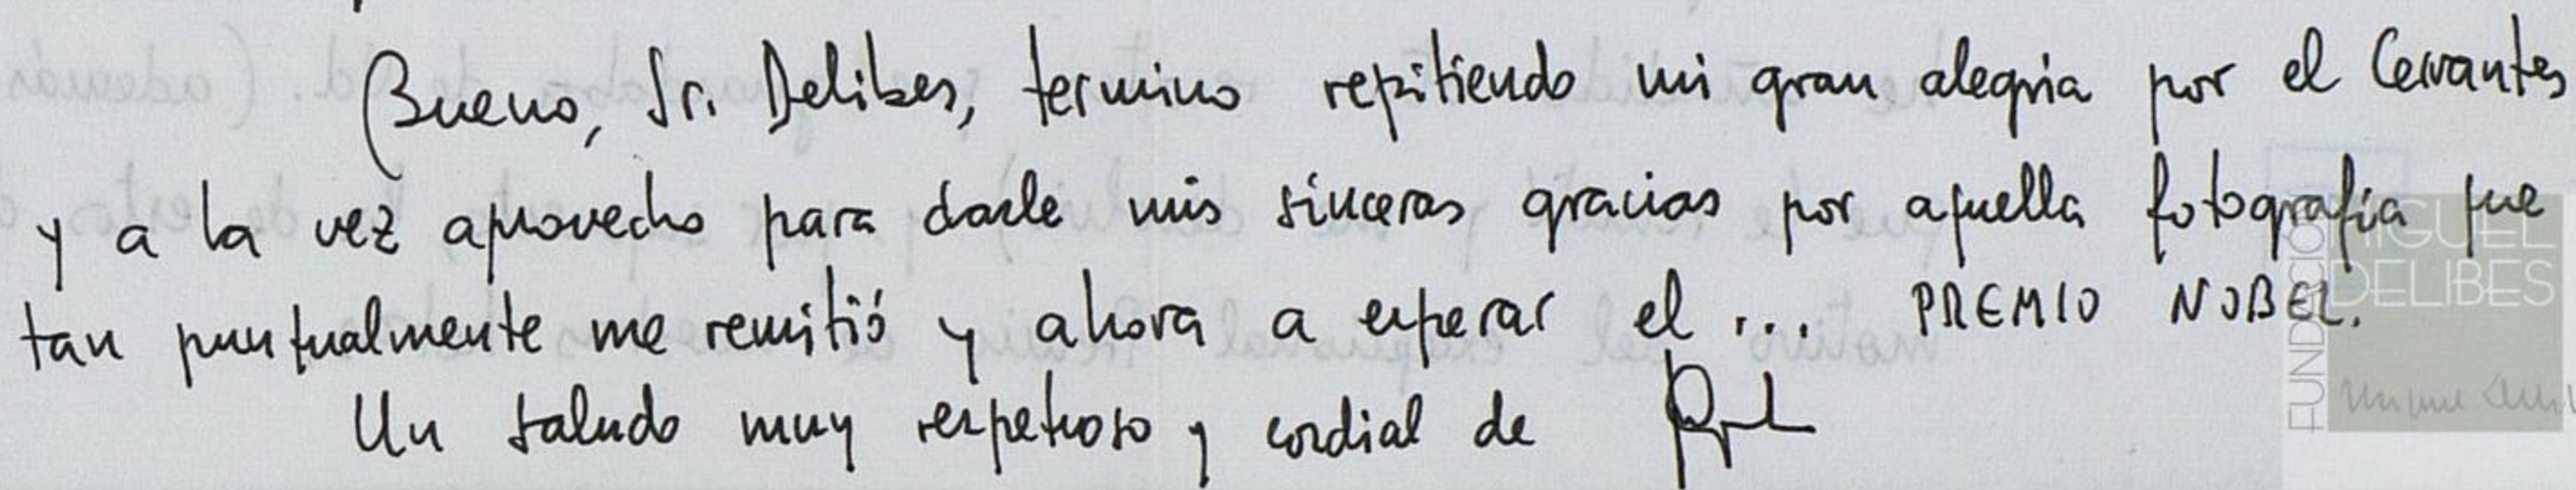 Bueno, Sr. Delibes, termino repitiendo mi gran alegria por el Cervantes
y a la vez aprovecho para darle mis sinceras gracias por aquella fotografía que
tan puntualmente me remitió y ahora a esperar el ... PREMIO NOBEL.
Un saludo muy respetuoso y cordial de
FUNDACIÓN
MIGUEL
DELIBES